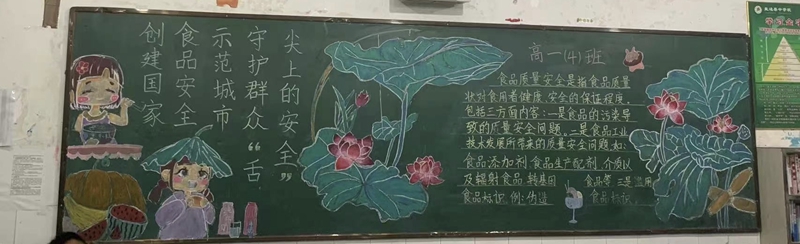 创建国家
食品安全
示范城市
守护群众“舌
尖上的安全”
高一(4)班
食品质量安全是指食品质量
状对食用者健康、安全的保证程度.
包括三方面内容:一是食品的污染导
致的质量安全问题.二是食品工业
技术发展所带来的质量安全问题如:
食品添加剂 食品生产配剂 介质以
及辐射食品 转基因 食品等 三是滥用
食品标识 例:伪造 食品标识